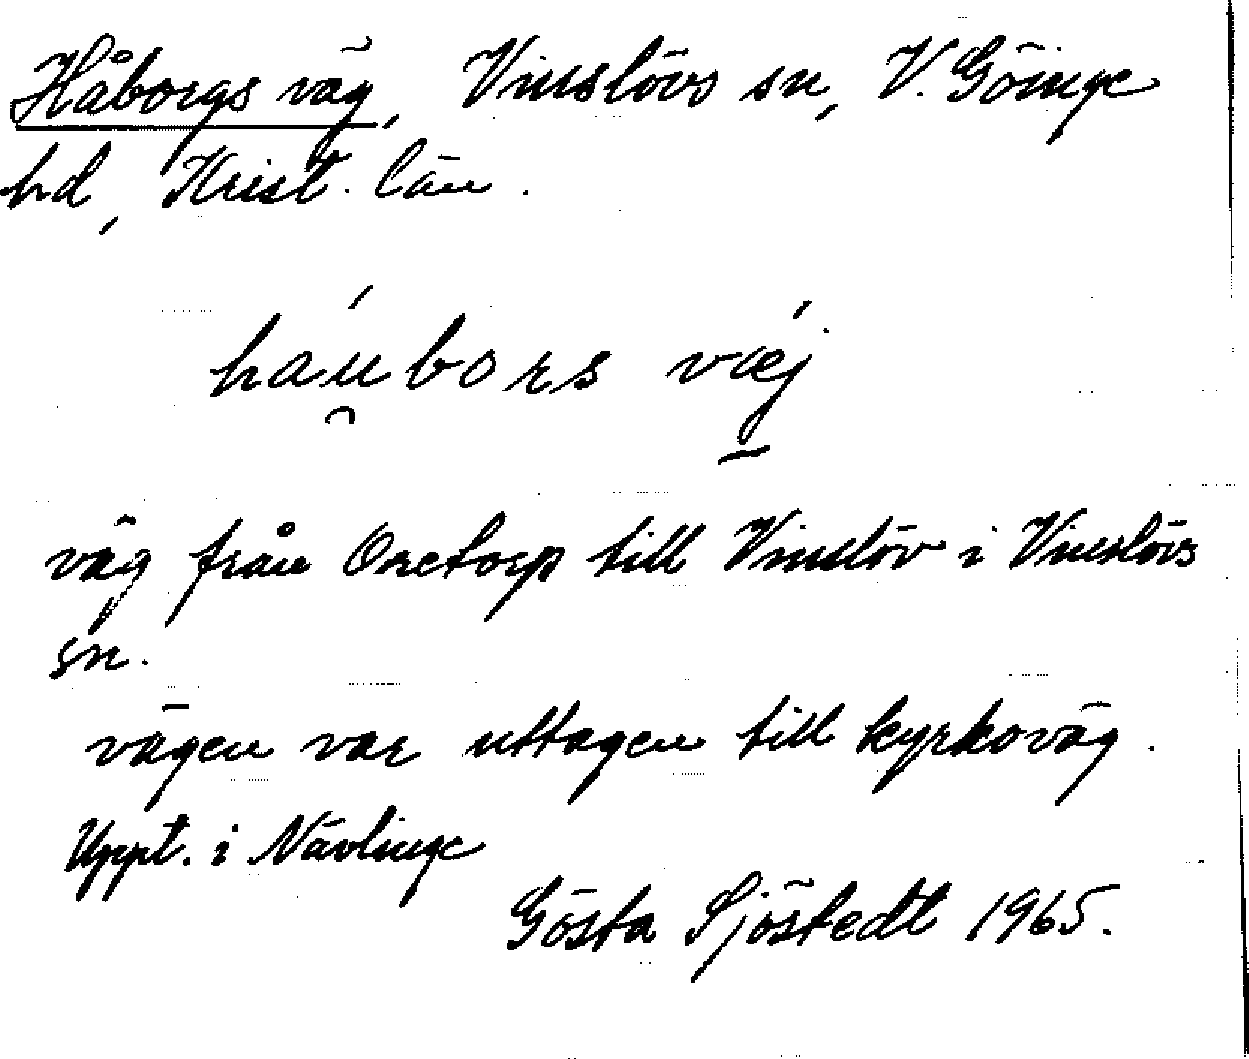 Håborgs väg, Vinslövs sn, V. Göinge
hd, Krist. län.
háu̯bors vǽj
väg från Oretorp till Vinslöv i Vinslövs
sn.
vägen var uttagen till kyrkoväg.
Uppt. i Nävlinge
Gösta Sjöstedt 1965.